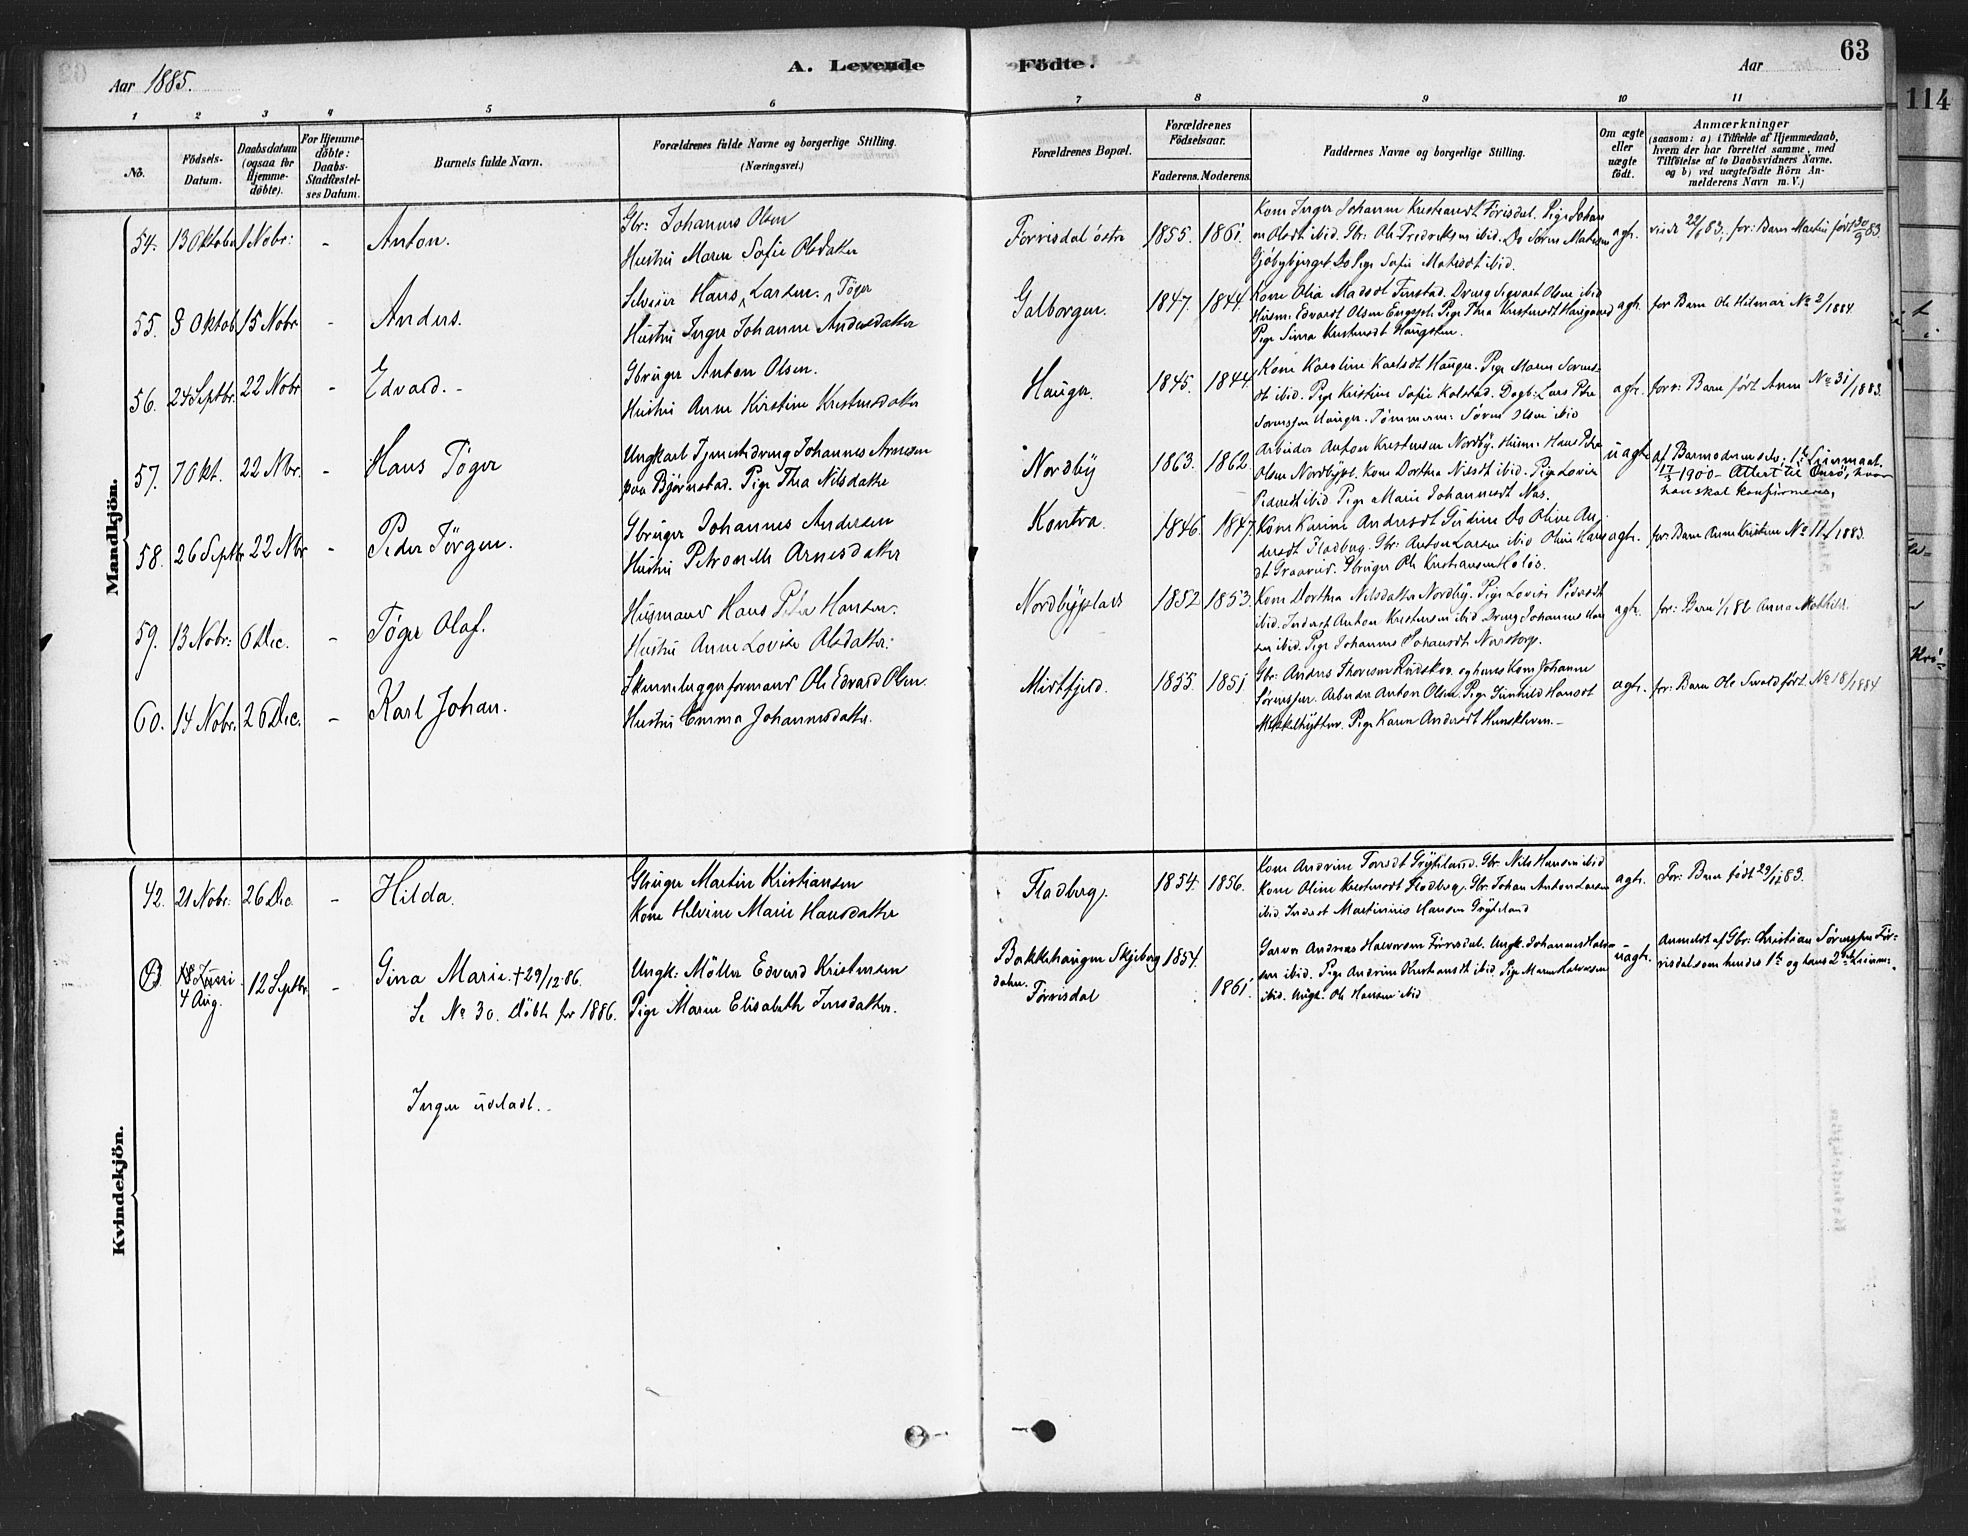 63
Aar 1885.
A. Levende Födte.
Aar
114
1 2 3 4 5 6 7 8 9 10 11
No.
Födsels-Datum.
Daabsdatum (ogsaa för Hjemme-döbte).
For Hjemme-döbte: Daabs-Stadfæstel-ses Datum.
Barnets fulde Navn.
Forældrenes fulde Navne og borgerlige Stilling. (Næringsvei.)
Forældrenes Bopæl.
Forældrenes Födselsaar.
Faderens. Moderens.
Faddernes Navne og borgerlige Stilling.
Om ægte eller uægte födt.
Anmærkninger
(saasom: a) i Tilfælde af Hjemmedaab, hvem der har forrettet samme, med Tilföielse af to Daabsvidners Navne, og b) ved uægtefödte Börn An-melderens Navn m. V.)
Mandkjön.
54. 13 Oktober 1 Nobr: - Anton.
Gbr: Johannes Olsen
Hustru Maren Sofie Olsdatter
Forrisdal östre 1855. 1861.
Kone Inger Johanne Forisdal. Pige Johan
ibid. Gbr: Ole Fredriksen ibid. Do Søren
Pige Sofie ibid.
agte.
for: Barn Martin født 30/9 83.
55. 8 Oktob. 15 Nobr - Anders.
Selveier Hans Larsen. Töger
Hustru Inger Johanne Andersdatter
Galborgen. 1847. 1844.
Kone Olia Madsdt Dreng Sigvart Olsen ibid
Husm: Edvardt Olsen Pige Thea
Pige
agte. for Barn Ole Hilmar No 2/1884.
56. 24 Septbr. 22 Nobr - Edvard. -
Gbruger Anton Olsen.
Hustru Anne Kirstine Kristensdatter
Hauger 1845. 1844.
Kone Karoline Karlsdt Hauger. Pige Maren Sorens-
dt ibid. Pige Kristine Sofie Kolstad. Dagb: Lars Petter
Sorensen Hauger. Tømmerm: Søren Olsen ibid
agte. forr: Barn født Anne No 31/1883.
57. 7 Okt. 22 Nbr. - Hans Töger
Ungkarl Tjenestedreng Johannes Arnesen
paa Bjørnstad. Pige Thea Nilsdatter
Nordby 1863. 1862
Arbeider Anton Kristensen Nordby. Husm: Hans Peter
Olsen Nordbypl. Kone Dorthea Nilsdt ibid. Pige Lovise
Pedersdt ibid. Pige Marie Johannesdt Næs.
uagte af Barnemoderen selv. 1te Leiermaal.
17/3 1900 - Attest til Onsö, hvor
han skal konfirmeres,
58. 26 Septbr 22 Nbr - Peder Jörgen.
Gbruger Johannes Andersen
Hustru Petronelle Arnesdatter
Kontra. 1846. 1847.
Kone Karine Andersdt Do Oline An-
dersdt Flodberg. Gbr: Anton Larsen ibid Oline Hans
dt Graarud. Gbruger Ole Kristiansen
agte. for: Barn Anne Kristine No 11/1883.
59. 13 Nobr: 6 Dec. - Töger Olaf.
Husmand Hans Peter Hansen.
Hustru Anne Lovise Olsdatter.
Nordbyplads 1852 1853.
Kone Dorthea Nilsdatter Nordby. Pige Lovise Pedersdt
ibid. Inderst Anton Kristensen ibid Dreng Johannes Han
sen ibid. Pige Johanne Johansdt
agte. for: Barn 1/1 82 Anna Mathilde.
60. 14 Nobr. 26 Dec. - Karl Johan.
Skinnelæggerformand Ole Edvard Olsen.
Hustru Emma Johannesdatter.
Midtfjeld. 1855. 1851
Gbr: Anders Thoresen Rudskov. og hans Kone Johanne
Sörensen. Arbeider Anton Olsen. Pige Hansdt
Pige Karen Andersdt -
agte. for: Barn Ole født No 18/1884
Kvindekjön.
42. 21 Nobr. 26 Dec. - Hilda.
Gbruger Martin Kristiansen
Kone Helvine Marie Hansdatter
Flodberg. 1854. 1856.
Kone Andrine Torsdt Grytiland. Gbr: Nils Hansen ibid
Kone Oline Kristensdt Flodberg. Gbr: Johan Anton Larsen
ibid. Inderst Martinius Hansen Grytiland
agte. For: Barn født 29/12 83.
43. 18 Juni
4 Aug. 12 Septbr - Gina Marie. † 29/12.86.
Se No 30. Döbte for 1886.
Ungk: Möller Edvard Kristensen
Pige Maren Elisabeth Jensdatter.
Bakkehaugen Skjeberg 1854.
Forrisdal 1861.
Garver Andreas Halvorsen Forrisdal. Ungk. Johannes Halvor
sen ibid. Pige Andrine Kristiansdt ibid. Pige Maren Halvorsen
ibid. Ungk. Ole Hansen ibid
uagte. Anmeldt af Gbr: Christian Sörensen For-
risdal som hendes 1te og hans 2det Leierm:
Ingen udeladt.